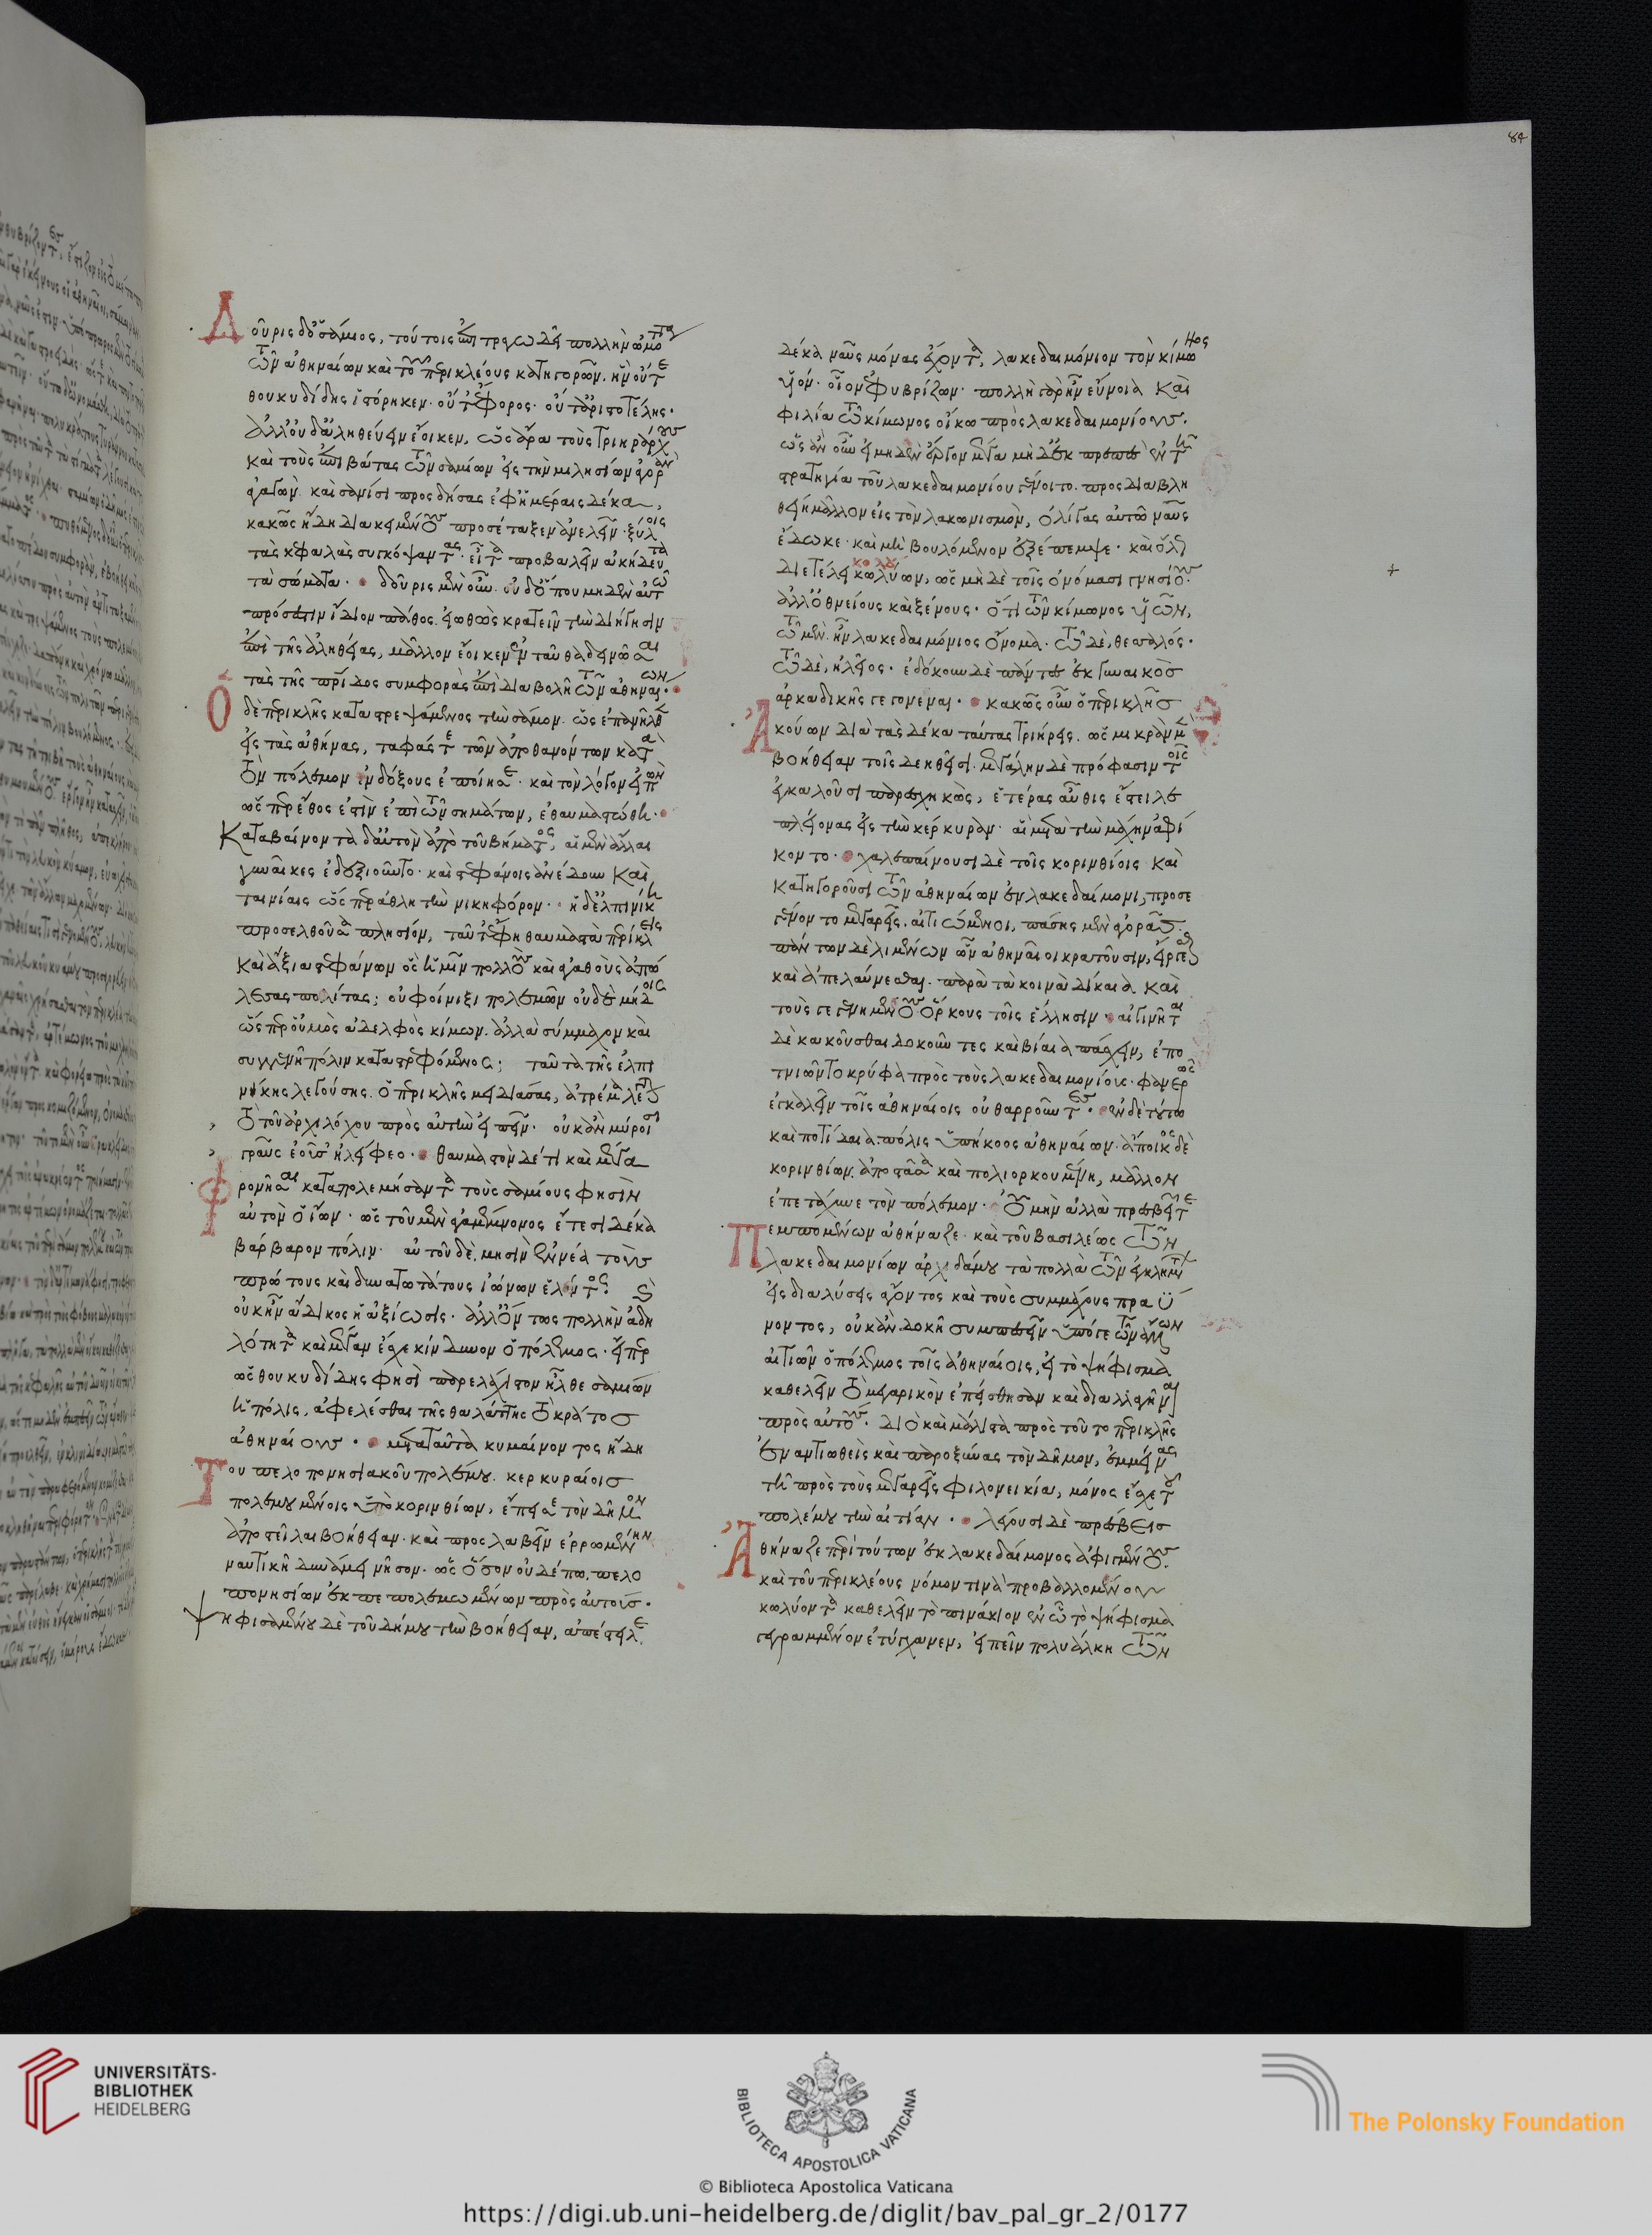 84
Δοῦρις δ' ὁ σάμιος, τούτοις ἐπιτραγωδεῖ πολλὴν ὠμότητα
τῶν ἀθηναίων καὶ τοῦ περικλέους κατηγορῶν. ἣν οὔτε
θουκυδίδης ἱστόρηκεν· οὔτ' ἔφορος· οὔτ' ἀριστοτέλης·
ἀλλ' οὐδ' ἀληθεύειν ἔοικεν, ὡς ἄρα τοὺς τριηράρχους
καὶ τοὺς ἐπιβάτας τῶν σαμίων εἰς τὴν μιλησίων ἀγορὰν
ἀγαγὼν. καὶ σανίσι προσδήσας ἐφ' ἡμέραις δέκα,
κακῶς ἤδη διακειμένους προσέταξεν ἀνελεῖν· ξύλοις
τὰς κεφαλὰς συγκόψαντας· εἶτα προβαλεῖν ἀκήδευτα
τὰ σώματα· δοῦρις μὲν οὖν· οὐδ' ὅπου μηδὲν αὐτῶ
πρόσεστιν ἴδιον πάθος. εἰωθὼς κρατεῖν τὴν διήγησιν
ἐπὶ τῆς ἀληθείας, μᾶλλον ἔοικεν ἐνταῦθα δεινῶσαι
τὰς τῆς πατρίδος συμφορὰς ἐπὶ διαβολῆ τῶν ἀθηναίων·
Ὁ δὲ περικλῆς καταστρεψάμενος τὴν σάμον. ὡς ἐπανῆλθεν
εἰς τὰς ἀθήνας, ταφάς τε τῶν ἀποθανόντων κατὰ
τὸν πόλεμον ἐνδόξους ἐποίησε· καὶ τὸν λόγον εἰπὼν
ὥσπερ ἔθος ἐστὶν ἐπὶ τῶν σημάτων, ἐθαυμαστώθη·
Καταβαίνοντα δ' αὐτὸν ἀπὸ τοῦ βήματος, αἱ μὲν ἄλλαι
γυναῖκες ἐδεξιοῦντο· καὶ στεφάνοις ἀνέδουν καὶ
ταινίαις ὥσπερ ἀθλητὴν νικηφόρον· ἡ δ' ἐλπινίκη
προσελθοῦσα πλησίον, ταῦτ' ἔφη θαυμαστὰ περίκλεις
καὶ ἄξια στεφάνων ὃς ἡμῖν πολλοὺς καὶ ἀγαθοὺς ἀπώ
λεσας πολίτας; οὐ φοίνιξι πολεμῶν οὐδὲ μήδοις
ὥσπερ οὑμὸς ἀδελφὸς κίμων. ἀλλὰ σύμμαχον καὶ
συγγενῆ πόλιν καταστρεφόμενος; ταῦτα τῆς ἐλπι
νίκης λεγούσης. ὁ περικλῆς μειδιάσας, ἀτρέμα λέγεται
τὸ τοῦ ἀρχιλόχου πρὸς αὐτὴν εἰπεῖν· οὐκ ἂν μύροισι
γραῦς ἐοῦσ' ἠλείφεο· θαυμαστὸν δέ τι καὶ μέγα
Φρονῆσαι καταπολεμήσαντα τοὺς σαμίους φησὶν
αὐτὸν ὁ ἴων· ὡς τοῦ μὲν ἀγαμέμνονος ἔτεσι δέκα
βάρβαρον πόλιν· αὐτοῦ δὲ, μησὶν ἐννέα τοὺς
πρώτους καὶ δυνατωτάτους ἰώνων ἑλόντος·
οὐκ ἦν ἄδικος ἡ ἀξίωσις· ἀλλ' ὄντως πολλὴν ἀδη
λότητα καὶ μέγαν ἔσχε κίνδυνον ὁ πόλεμος· εἴπερ
ὡς θουκυδίδης φησὶ παρ' ἐλάχιστον ἦλθε σαμίων
ἡ πόλις, ἀφελέσθαι τῆς θαλάττης τὸ κράτος
ἀθηναίους· μετὰ ταῦτα κυμαίνοντος ἤδη
Του πελοποννησιακοῦ πολέμου. κερκυραίοις
πολεμουμένοις ὑπὸ κορινθίων, ἔπεισε τὸν δῆμον
ἀποστεῖλαι βοήθειαν· καὶ προσλαβεῖν ἐρρωμένην
ναυτικῆ δυνάμει νῆσον· ὡς ὅσον οὐδέπω, πελο
πονησίων ἐκπεπολεμωμένων πρὸς αὐτούς·
Ψηφισαμένου δὲ τοῦ δήμου τὴν βοήθειαν, ἀπέστειλε
δέκα ναῦς μόνας ἔχοντα, λακεδαιμόνιον τὸν κίμωνος
υἱόν· οἷον ἐφυβρίζων· πολλὴ γὰρ ἦν εὔνοια καὶ
φιλία τῶ κίμωνος οἴκω πρὸς λακεδαιμονίους·
ὡς ἂν οὖν εἰ μηδὲν ἔργον μέγα μηδ' ἐκπρεπὲς ἐν τῆ
στρατηγία τοῦ λακεδαιμονίου γένοιτο. προσδιαβλη
θείη μᾶλλον εἰς τὸν λακωνισμὸν, ὀλίγας αὐτῶ ναῦς
ἔδωκε· καὶ μὴ βουλόμενον ἐξέπεμψε· καὶ ὅλως
διετέλει κωλύων, ὡς μηδὲ τοῖς ὀνόμασι γνησίους·
ἀλλ' ὀθνείους καὶ ξένους· ὅτι τῶν κίμωνος υἱῶν,
τῶ μὲν ἦν λακεδαιμόνιος ὄνομα· τῶ δὲ, θεσσαλός·
τῶ δὲ, ἠλεῖος· ἐδόκουν δὲ πάντες ἐκ γυναικὸς
ἀρκαδικῆς γεγονέναι· κακῶς οὖν ὁ περικλῆς
Ἀκούων διὰ τὰς δέκα ταύτας τριήρεις. ὡς μικρὰν μὲν
βοήθειαν τοῖς δεηθεῖσι· μεγάλην δὲ πρόφασιν τοῖς
ἐγκαλοῦσι παρεσχηκὼς, ἑτέρας αὖθις ἔστειλε
πλείονας εἰς τὴν κέρκυραν· αἳ μετὰ τὴν μάχην ἀφί
κοντο· χαλεπαίνουσι δὲ τοῖς κορινθίοις καὶ
κατηγοροῦσι τῶν ἀθηναίων ἐν λακεδαίμονι, προσε
γένοντο μεγαρεῖς. αἰτιώμενοι, πάσης μὲν ἀγορᾶς.
πάντων δὲ λιμένων ὧν ἀθηναῖοι κρατοῦσιν, εἴργεσθαι
καὶ ἀπελαύνεσθαι. παρὰ τὰ κοινὰ δίκαια καὶ
τοὺς γεγενημένους ὅρκους τοῖς ἕλλησιν· αἰγινῆται
δὲ κακοῦσθαι δοκοῦντες καὶ βίαια πάσχειν, ἐπο
τνιῶντο κρύφα πρὸς τοὺς λακεδαιμονίοις· φανερῶς
ἐγκαλεῖν τοῖς ἀθηναίοις οὐ θαρροῦντες· ἐν δὲ τούτω
καὶ ποτίδαια πόλις ὑπήκοος ἀθηναίων. ἄποικος δὲ
κορινθίων. ἀποστᾶσα καὶ πολιορκουμένη, μᾶλλον
ἐπετάχυνε τὸν πόλεμον· οὐ μὴν ἀλλὰ πρεσβειῶν τε
Πεμπομένων ἀθήναζε. καὶ τοῦ βασιλέως τῶν
λακεδαιμονίων ἀρχιδάμου τὰ πολλὰ τῶν ἐγκλημάτων
εἰς διαλύσεις ἄγοντος καὶ τοὺς συμμάχους πραΰ
νοντος, οὐκ ἂν δοκῆ συμπεσεῖν ὑπό γε τῶν ἄλλων
αἰτιῶν ὁ πόλεμος τοῖς ἀθηναίοις, εἰ τὸ ψήφισμα
καθελεῖν τὸ μεγαρικὸν ἐπείσθησαν καὶ διαλλαγῆναι
πρὸς αὐτούς· διὸ καὶ μάλιστα πρὸς τοῦτο περικλῆς
ἐναντιωθεὶς καὶ παροξύνας τὸν δῆμον, ἐμμείνας
τῆ πρὸς τοὺς μεγαρεῖς φιλονεικία, μόνος ἔσχε τοῦ
πολέμου τὴν αἰτίαν· λέγουσι δὲ πρέσβεις
Ἀθήναζε περὶ τούτων ἐκ λακεδαίμονος ἀφιγμένους·
καὶ τοῦ περικλέους νόμον τινὰ προβαλλομένου
κωλύοντα καθελεῖν τὸ πινάκιον ἐν ὧ τὸ ψήφισμα
γεγραμμένον ἐτύγχανεν, εἰπεῖν πολυάλκη τῶν
UNIVERSITÄTS-
BIBLIOTHEK
HEIDELBERG
BIBLIOTECA APOSTOLICA VATICANA
The Polonsky Foundation
© Biblioteca Apostolica Vaticana
https://digi.ub.uni-heidelberg.de/diglit/bav_pal_gr_2/0177